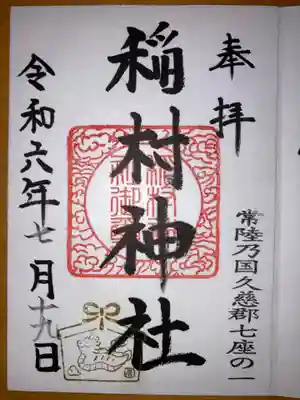 奉拝
常陸乃国久慈郡七座の一
稲村神社
令和六年七月十九日